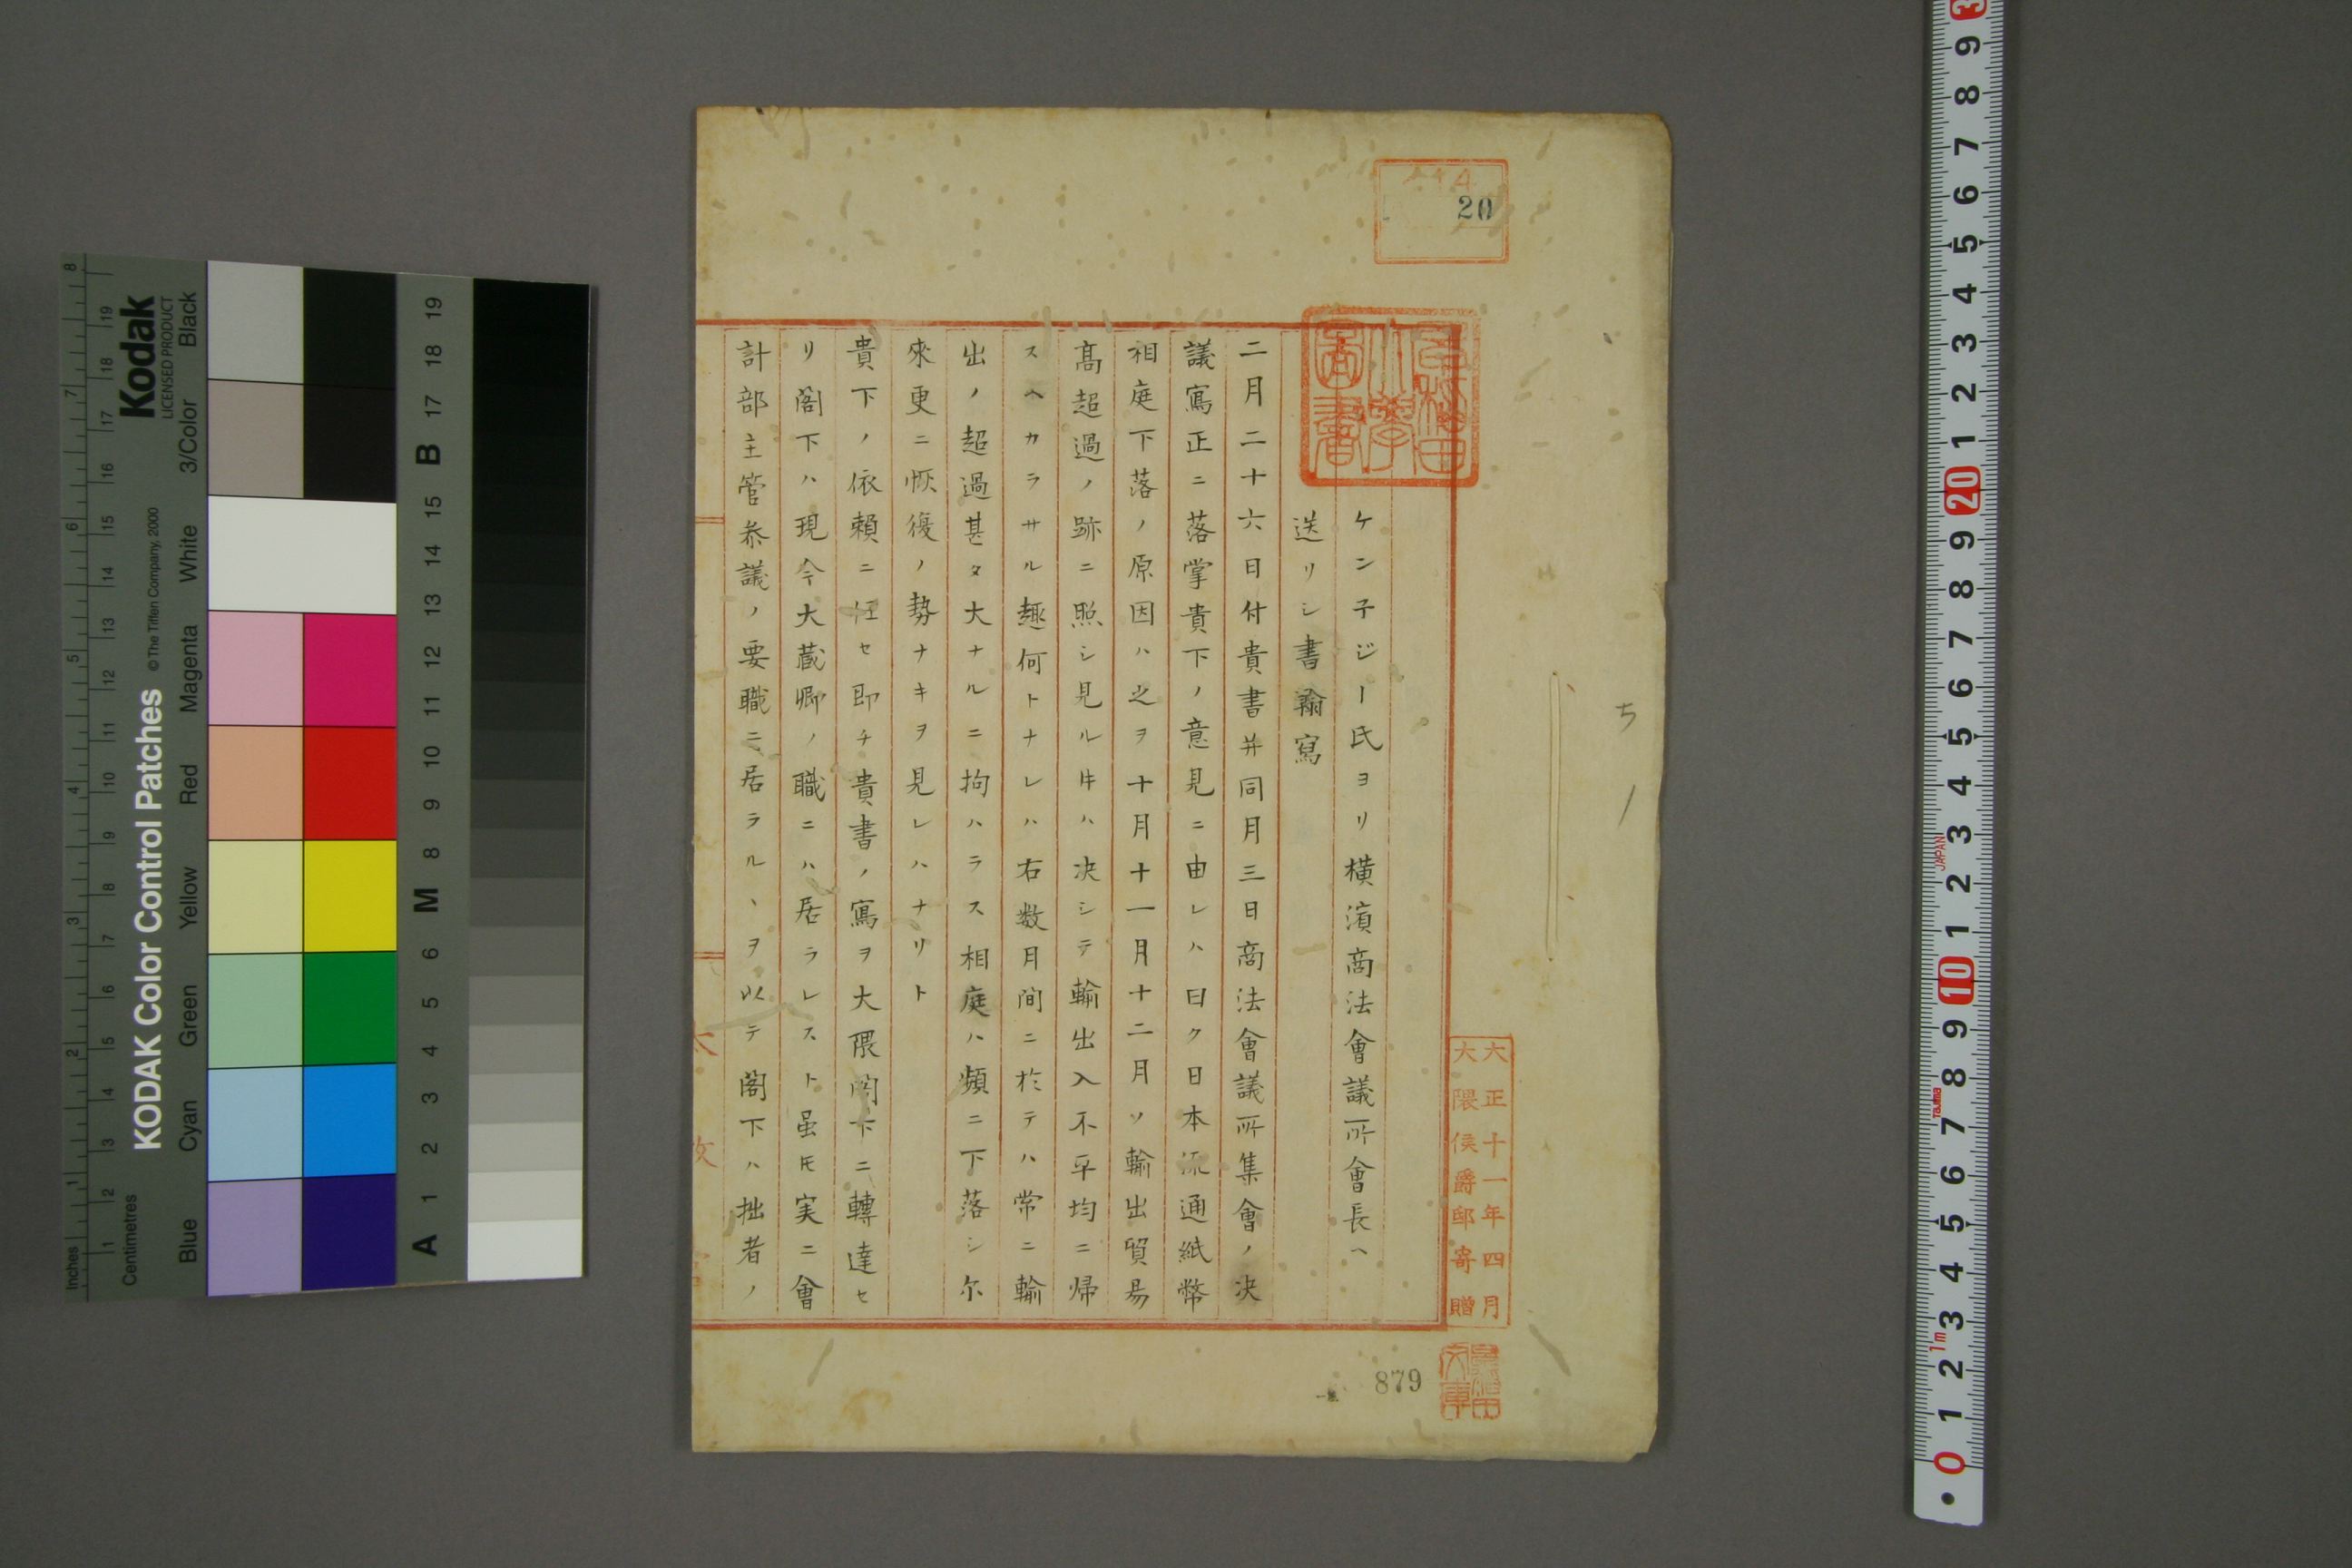 ケン子ジー氏ヨリ横濱商法會議所會長ヘ
送リシ書翰寫
二月二十六日付貴書并同月三日商法會議所集會ノ决
議寫正ニ落掌貴下ノ意見ニ由レハ曰ク日本流通紙幣
相庭下落ノ原因ハ之ヲ十月十一月十二月ソ輸出貿易
髙超過ノ跡ニ照シ見ル牛ハ决シテ輸出入不平均ニ帰
スヘカラサル趣何トナレハ右数月间ニ於テハ常ニ輸
出ノ超過甚タ大ナルニ拘ハラス相庭ハ頻ニ下落シ尓
來更ニ恢復ノ勢ナキヲ見レハナリト
貴下ノ依頼ニ任セ即チ貴書ノ寫ヲ大隈閣下ニ轉達セ
リ閣下ハ現今大蔵卿ノ職ニハ居ラレスト虽𪜈実ニ會
計部主管参議ノ要職ニ居ラルヽヲ以テ閣下ハ拙者ノ
20
早稲田大學圖書
大正十一年四月
大隈侯爵邸寄贈
879
ち
KODAK Color Control Patches
© The Tiffen Company, 2000
Kodak
LICENSED PRODUCT
Inches
Centimetres
Blue
Cyan
Green
Yellow
Red
Magenta
White
3/Color
Black
A 1 2 3 4 5 6 M 8 9 10 11 12 13 14 15 B 17 18 19
JAPAN
Tajima
1m